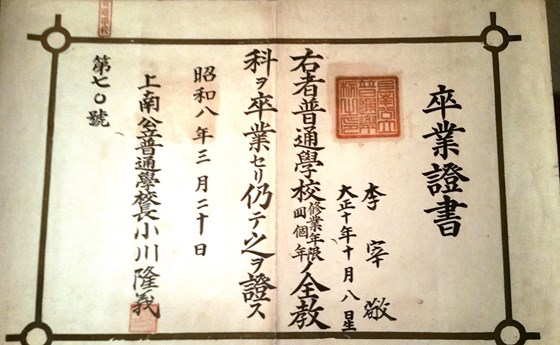 卒業證書
李宰敬
大正十年十月八日生
右者普通學校修業年限四個年ノ全教
科ヲ卒業セリ仍テ之ヲ證ス
昭和八年三月二十日
上南公立普通學校長小川隆義
第七〇號